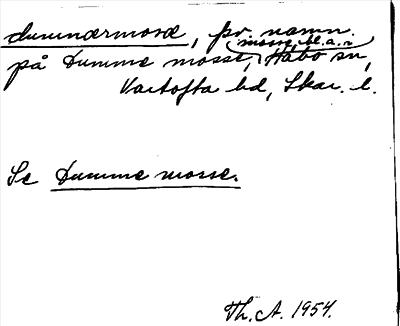 dummermosse, pr. namn.
mosse, bl. a. i
på Dumme mosse, Habo sn,
Vartofta hd, Skar. l.
Se Dumme mosse.
Th. A. 1954.